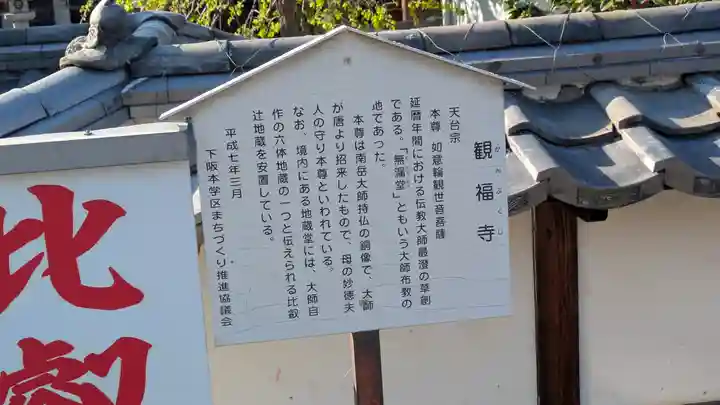 観福寺
かんぷくじ
天台宗
本尊 如意輪観世音菩薩
延暦年間における伝教大師最澄の草創
である。「無漏堂」ともいう大師布教の
地であった。
本尊は南岳大師持仏の銅像で、大師
が唐より招来したもので、母の妙徳夫
人の守り本尊といわれている。
なお、境内にある地蔵堂には、大師自
作の六体地蔵の一つと伝えられる比叡
辻地蔵を安置している。
平成七年三月
下阪本学区まちづくり推進協議会
比叡